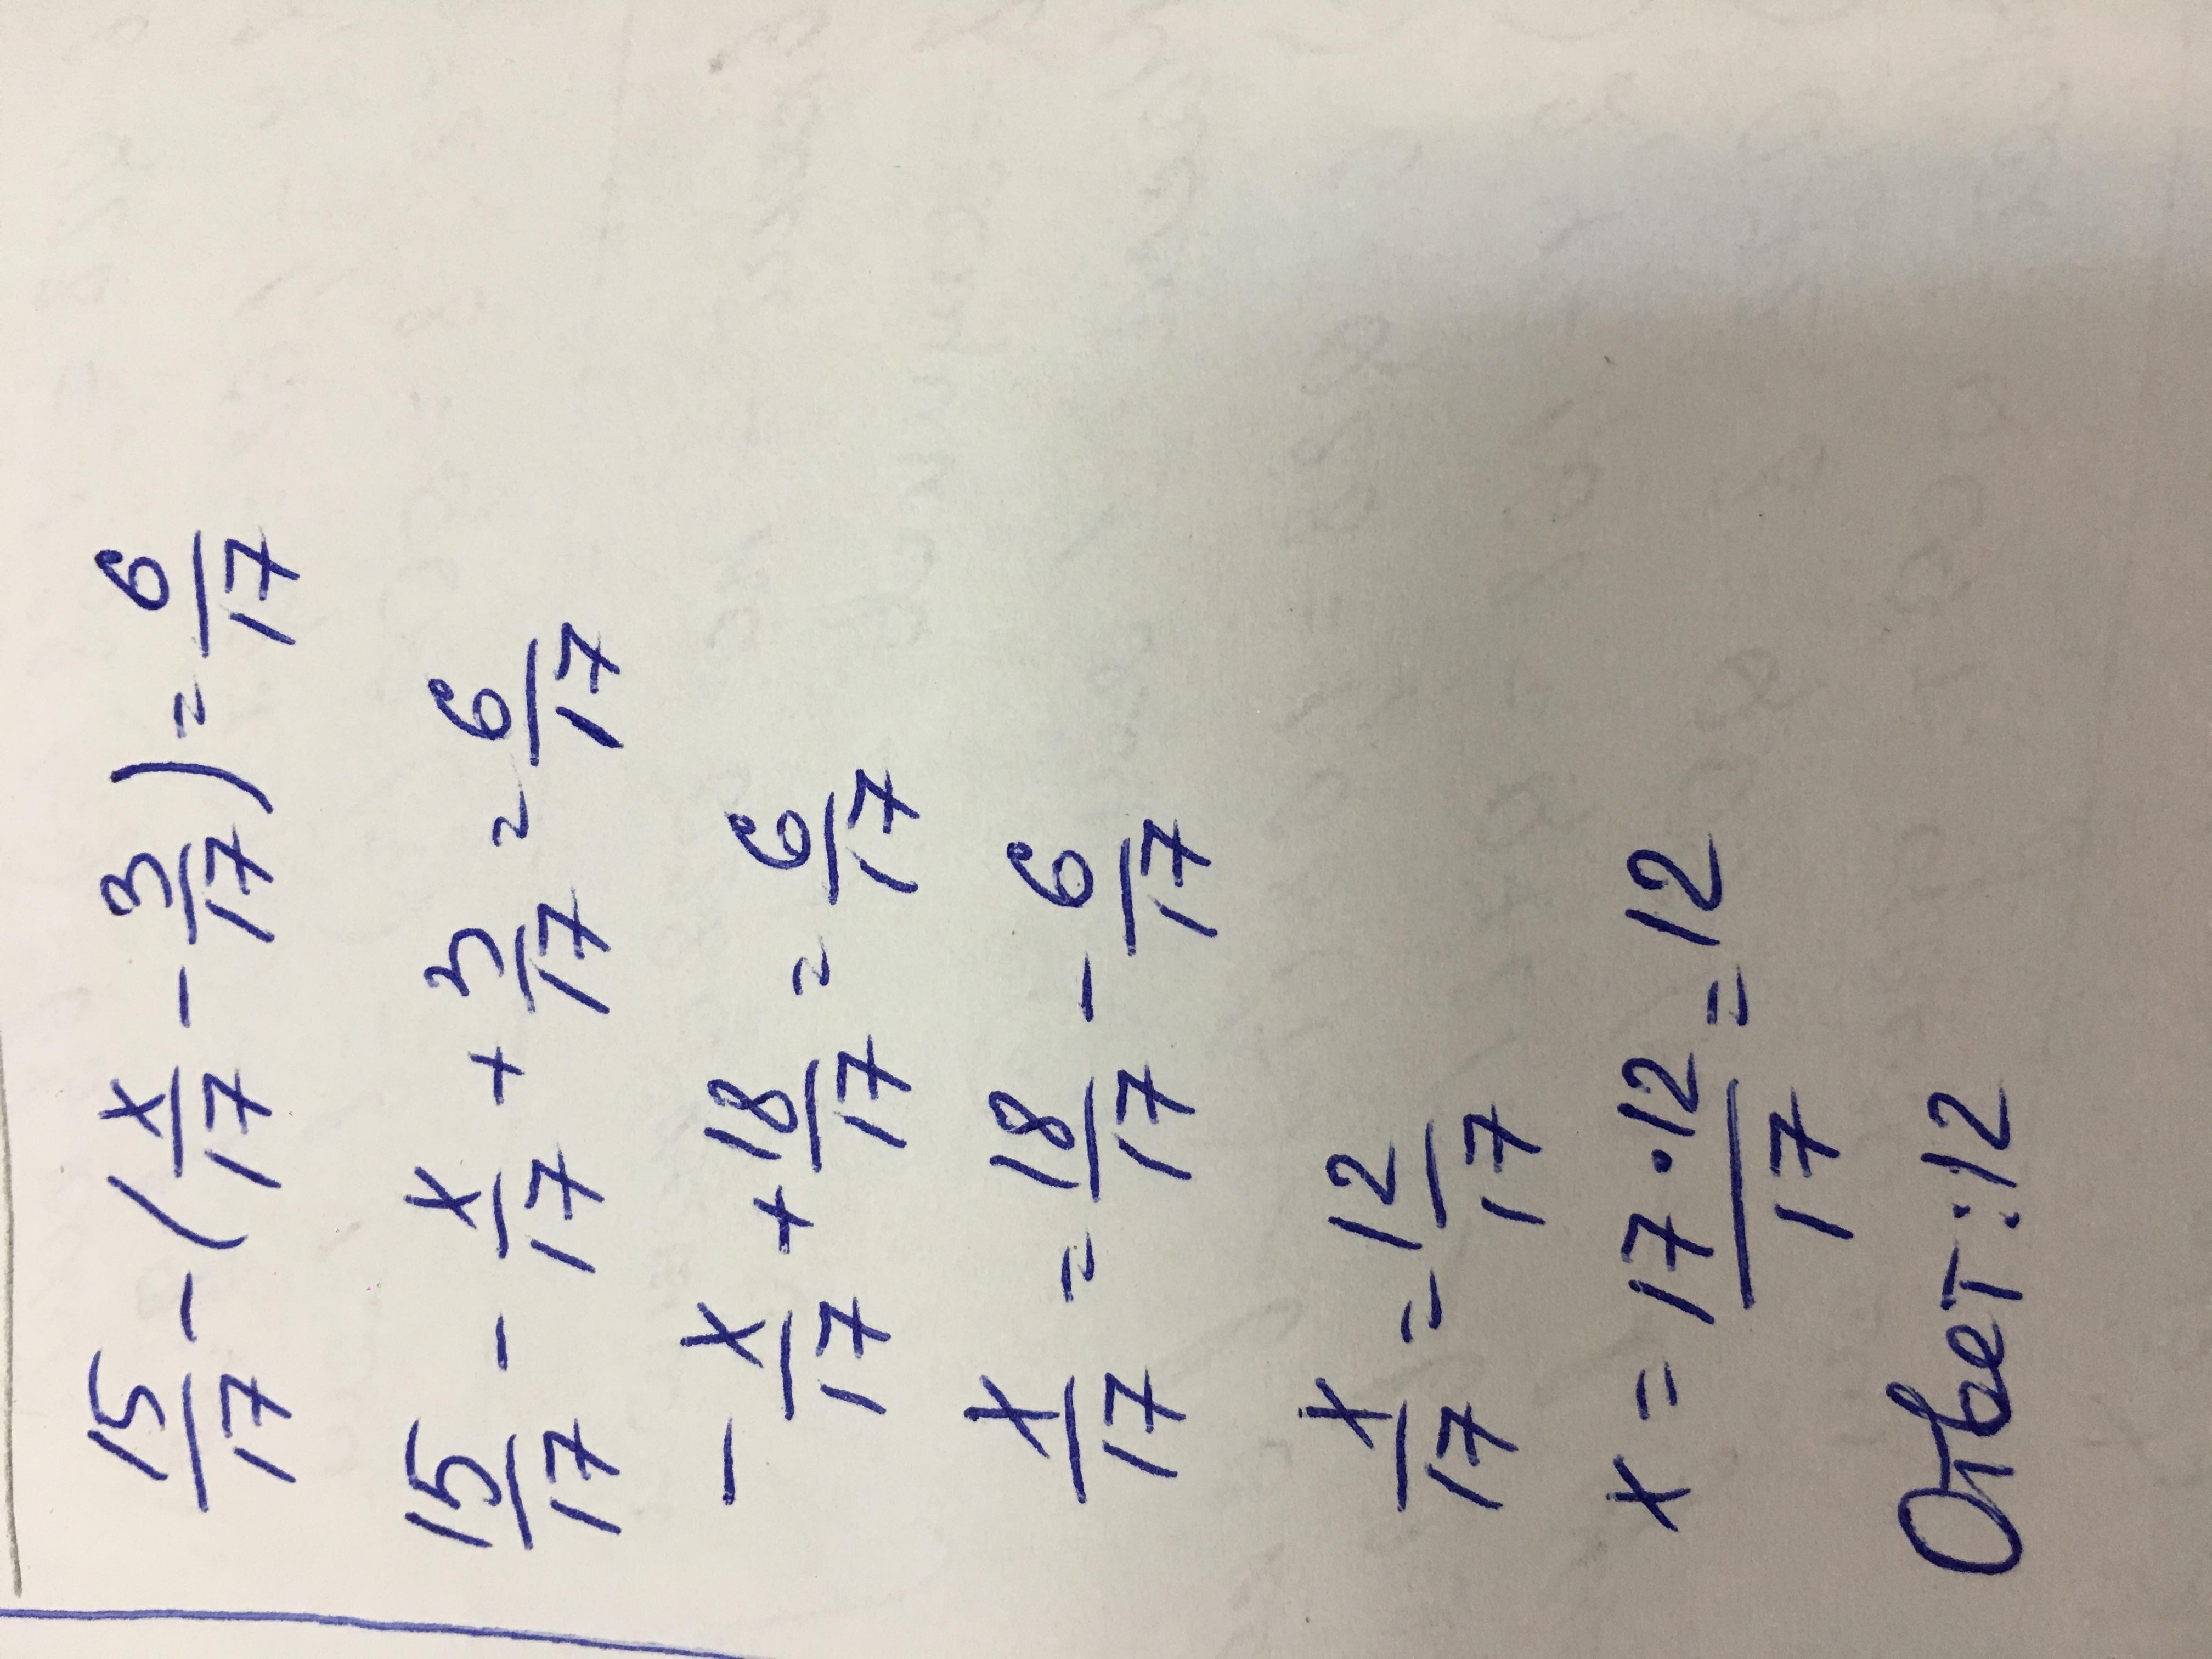 15/17 - (x/17 - 3/17) = 6/17
15/17 - x/17 + 3/17 = 6/17
- x/17 + 18/17 = 6/17
x/17 = 18/17 - 6/17
x/17 = 12/17
x = 17·12/17 = 12
Ответ: 12